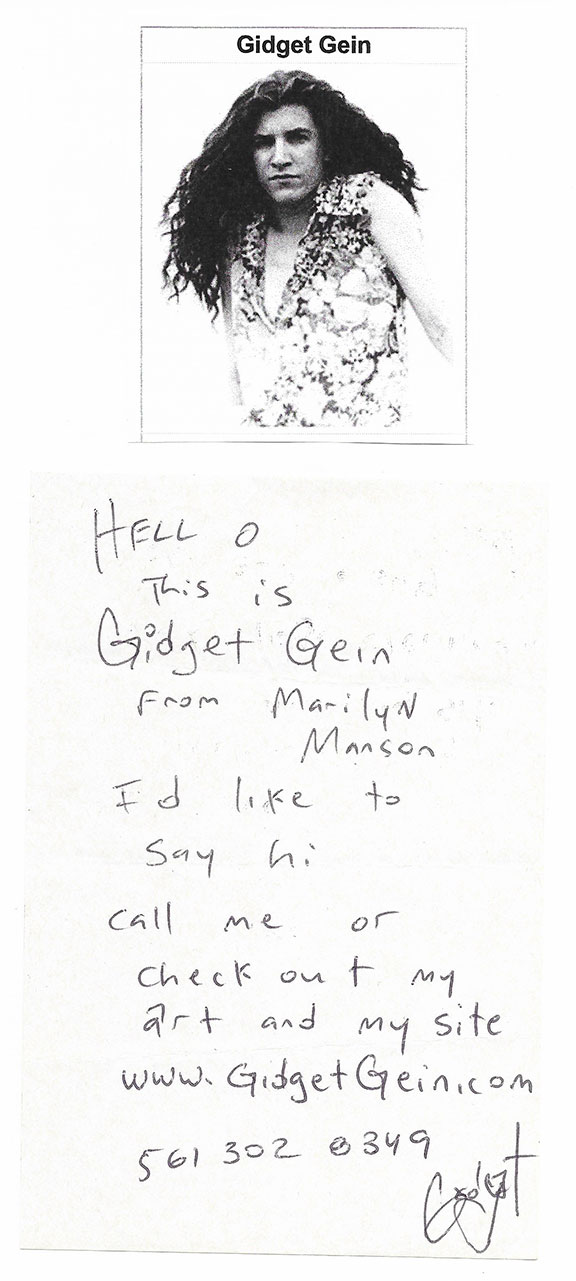 Gidget Gein
HELL O
This is
Gidget Gein
From MarilyN
Manson
I'd like to
say hi
call me or
check out my
art and my site
www.GidgetGein.com
561 302 0349
Gidget